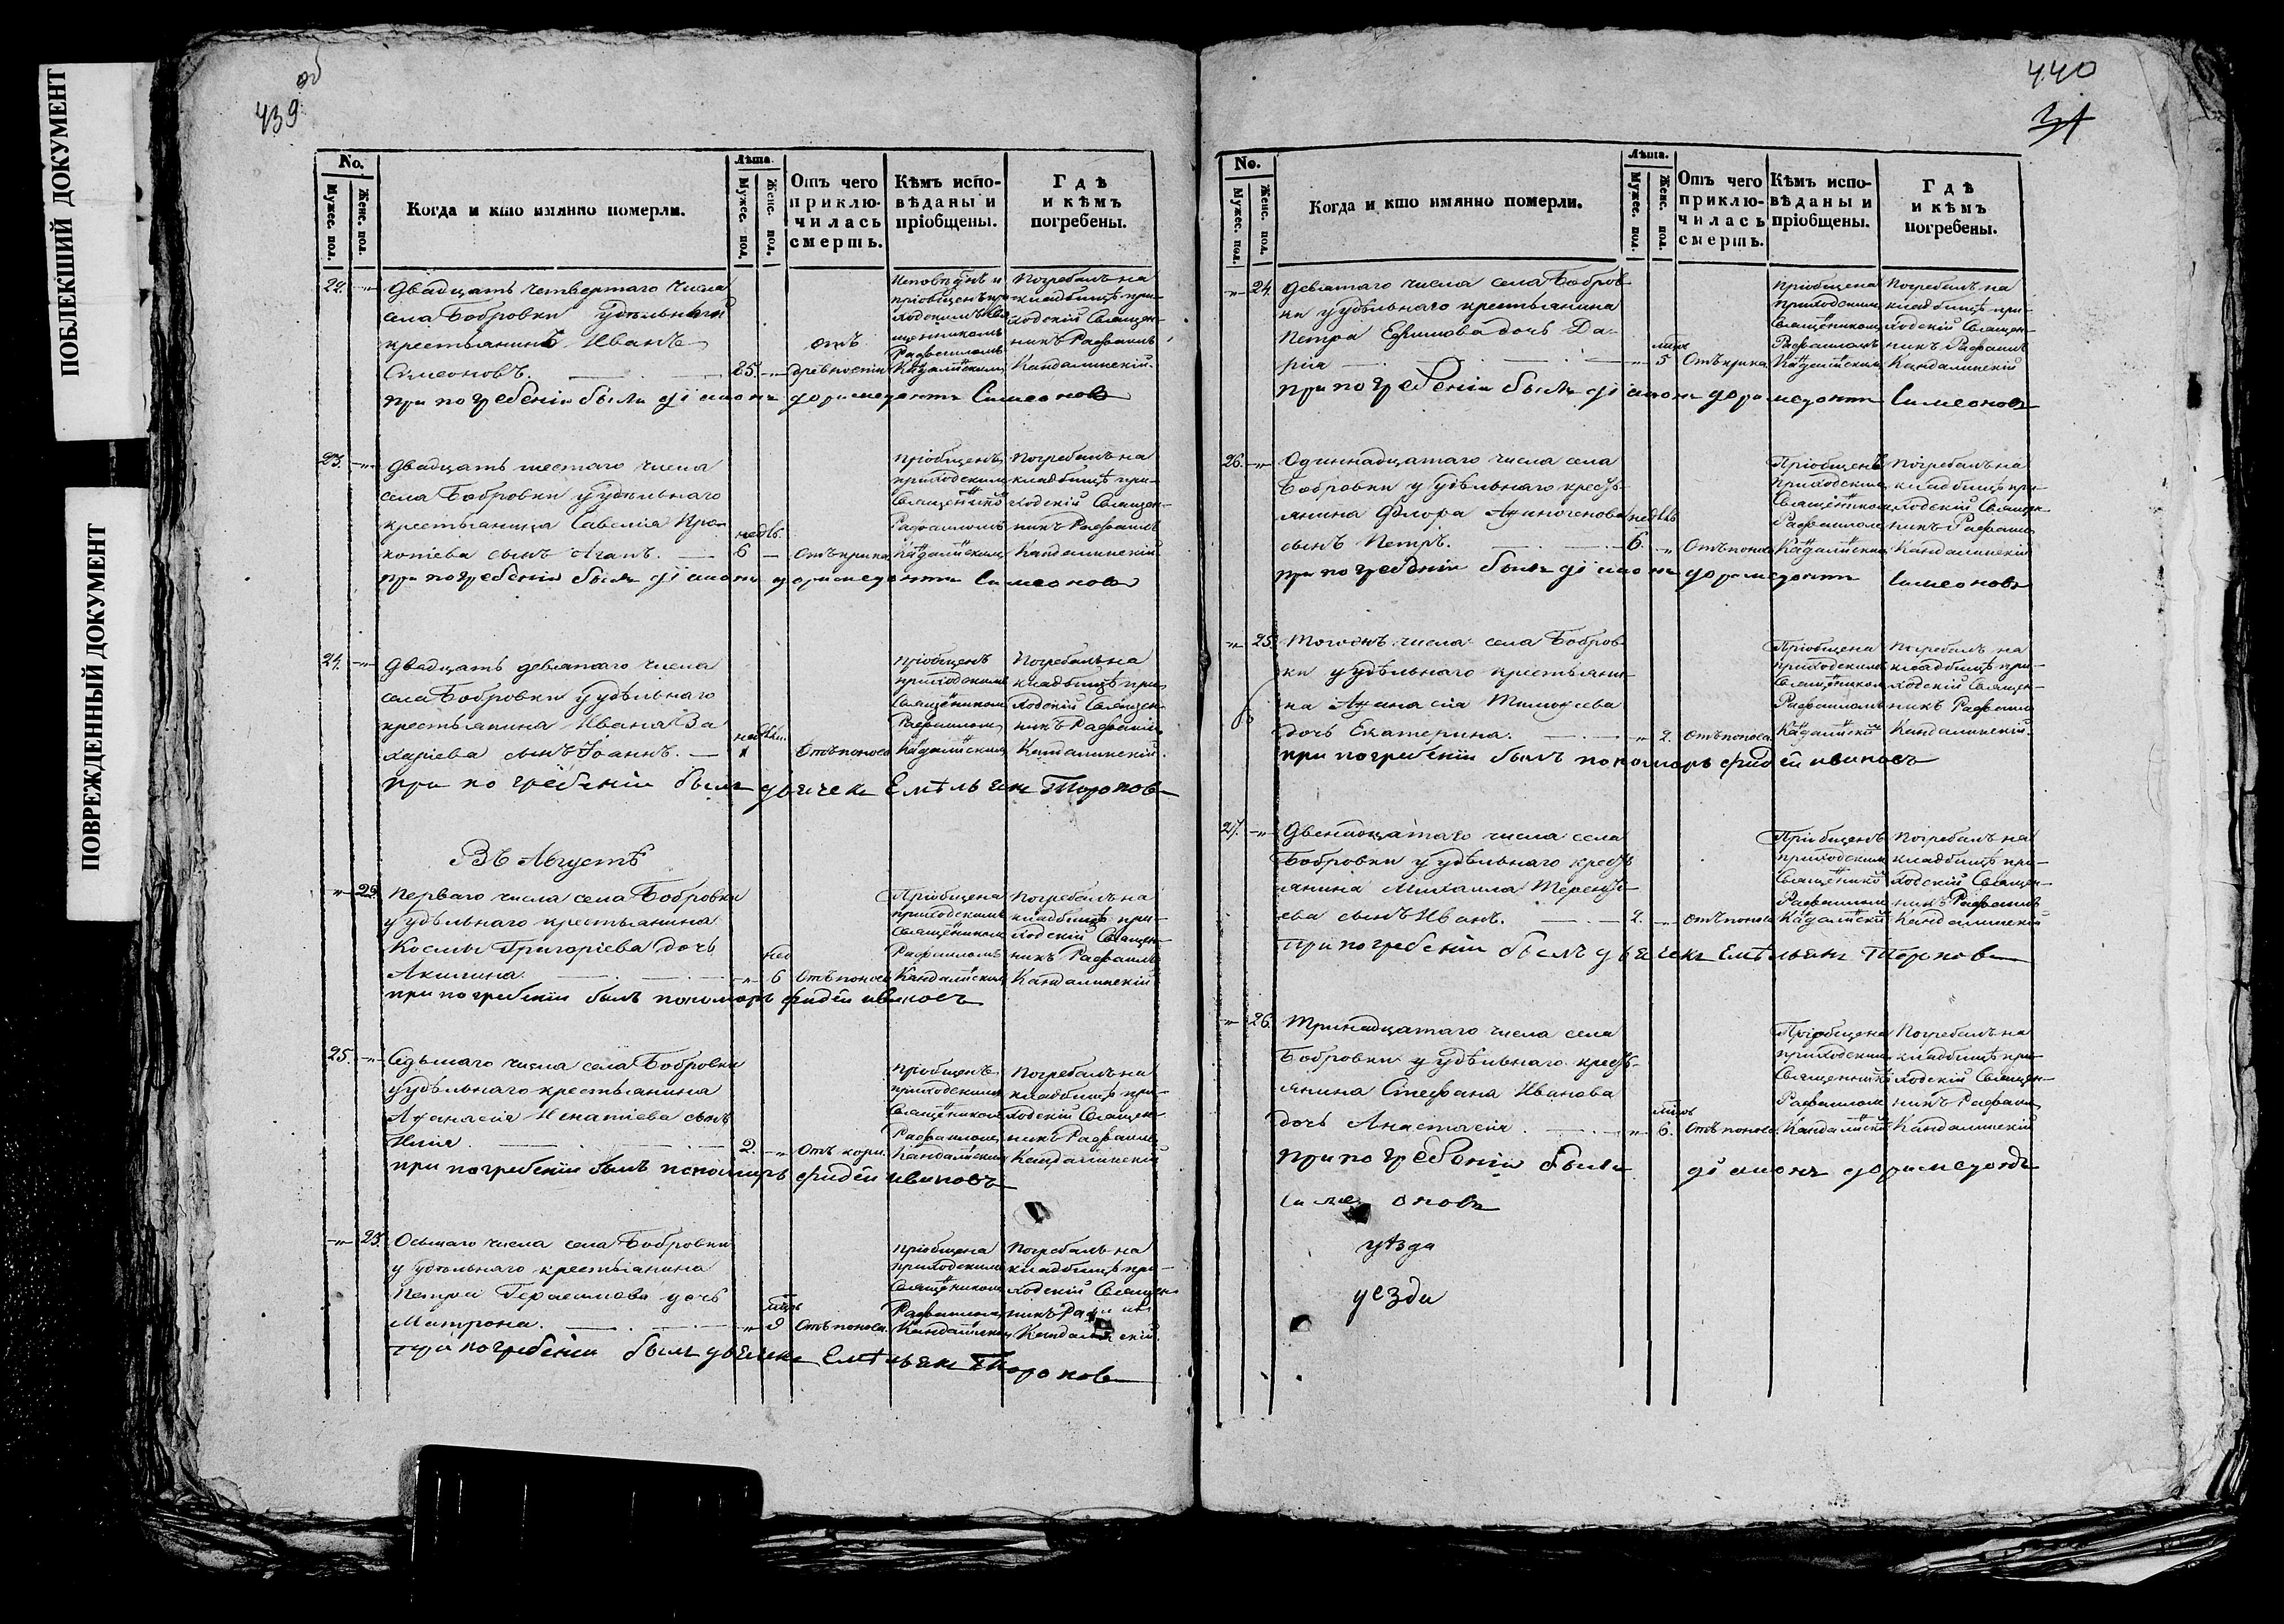 ПОБЛЕКШИЙ ДОКУМЕНТ
ПОВРЕЖДЕННЫЙ ДОКУМЕНТ
об
439
No.
Мужес. пол.
Женс. пол.
Когда и кто имянно померли.
Лѣта.
Мужес. пол.
Женс. пол.
Отъ чего приклю-чилась смерть.
Кѣмъ испо-вѣданы и пріобщены.
Гдѣ и кѣмъ погребены.
22.
Двадцать четвертаго числа
села Бобровки удѣльный
крестьянинъ Иванъ
Симеоновъ.
25.
отъ
древности
приходскимъ
Рафаиломъ
Кандалинскимъ
Погребенъ на
кладбищѣ при-
ходскій Священ-
никъ Рафаилъ
Кандалинскій.
При погребеніи былъ діаконъ доримедонтъ Симеоновъ
23.
Двадцать шестаго числа
села Бобровки у удѣльнаго
крестьянина Савелія Про-
копіева сынъ Агапъ.
недѣль
6
Отъ крика
Пріобщенъ
приходскимъ
Священникомъ
Рафаиломъ
Кандалинскимъ
Погребенъ на
кладбищѣ при-
ходскій Священ-
никъ Рафаилъ
Кандалинскій
При погребеніи былъ діаконъ доримедонтъ Симеоновъ
24.
Двадцать девятаго числа
села Бобровки у удѣльнаго
крестьянина Ивана За
харіева сынъ Іоаннъ.
Отъ поноса
Пріобщенъ
приходскимъ
Священникомъ
Рафаиломъ
Кандалинскимъ
Погребенъ на
кладбищѣ при-
ходскій Священ-
никъ Рафаилъ
Кандалинскій.
При погребеніи былъ дьячекъ Емѣльянъ Тороповъ
Въ Августѣ
Перваго числа села Бобровки
у удѣльнаго крестьянина
Космы Григоріева дочь
Акилина.
нед
6
Отъ поноса
Пріобщена
приходскимъ
Священникомъ
Рафаиломъ
Кандалинскимъ
Погребенъ на
кладбищѣ при-
ходскій Священ-
никъ Рафаилъ
Кандалинскій
При погребеніи былъ пономарь фидѣй ивановъ
25.
Седьмаго числа села Бобровки
у удѣльнаго крестьянина
Афанасія Игнатіева сынъ
Илія.
2.
Отъ кори.
Пріобщенъ
приходскимъ
Священникомъ
Рафаиломъ
Кандалинскимъ
Погребенъ на
кладбищѣ при-
ходскій Священ-
никъ Рафаилъ
Кандалинскій
При погребеніи былъ пономарь фидѣй ивановъ
23.
Осьмаго числа села Бобровки
у удѣльнаго крестьянина
Петра Герасимова дочь
Матрона.
Отъ поноса.
Пріобщена
приходскимъ
Священникомъ
Рафаиломъ
Кандалинскимъ
Погребенъ на
кладбищѣ при-
ходскій Священ-
никъ
При погребеніи былъ дьячекъ Емѣльянъ Тороповъ
440
No.
Мужес. пол.
Женс. пол.
Когда и кто имянно померли.
Лѣта.
Мужес. пол.
Женс. пол.
Отъ чего приклю-чилась смерть.
Кѣмъ испо-вѣданы и пріобщены.
Гдѣ и кѣмъ погребены.
24.
Девятаго числа села Бобров-
ки у удѣльнаго крестьянина
Петра Ефимова дочь Да-
рія
5
Отъ крика
Пріобщена
приходскимъ
Священникомъ
Рафаиломъ
Кандалинскимъ
Погребенъ на
кладбищѣ при-
ходскій Священ-
никъ Рафаилъ
Кандалинскій
При погребеніи былъ діаконъ доримедонтъ Симеоновъ
26.
Одиннадцатаго числа села
Бобровки у удѣльнаго кресть-
янина Флора Афиногенова
сынъ Петръ.
недѣль
6.
Отъ поноса
Пріобщенъ
приходскимъ
Священникомъ
Рафаиломъ
Кандалинскимъ
Погребенъ на
кладбищѣ при-
ходскій Священ-
никъ Рафаилъ
Кандалинскій
При погребеніи былъ діаконъ доримедонтъ Симеоновъ
25.
Тогожъ числа села Бобров-
ки у удѣльнаго крестьяни-
на Афанасія Тимофеева
дочь Екатерина.
2.
Отъ поноса.
Пріобщена
приходскимъ
Священникомъ
Рафаиломъ
Кандалинскимъ
Погребенъ на
кладбищѣ при-
ходскій Священ-
никъ Рафаилъ
Кандалинскій.
При погребеніи былъ пономарь фидѣй ивановъ
27.
Двенадцатаго числа села
Бобровки у удѣльнаго кресть
янина Михаила Теренть-
ева сынъ Иванъ.
2.
Отъ поноса
Пріобщенъ
приходскимъ
Священникомъ
Рафаиломъ
Кандалинскимъ
Погребенъ на
кладбищѣ при-
ходскій Священ-
никъ Рафаилъ
Кандалинскій
При погребеніи былъ дьячекъ Емѣльянъ Тороповъ
26.
Тринадцатаго числа села
Бобровки у удѣльнаго кресть-
янина Стефана Иванова
дочь Анастасія.
6.
Отъ поноса.
Пріобщена
приходскимъ
Священникомъ
Рафаиломъ
Кандалинскимъ
Погребенъ на
кладбищѣ при-
ходскій Священ-
никъ Рафаилъ
Кандалинскій
При погребеніи былъ діаконъ доримедонтъ
Симеоновъ
уѣзда
уезда